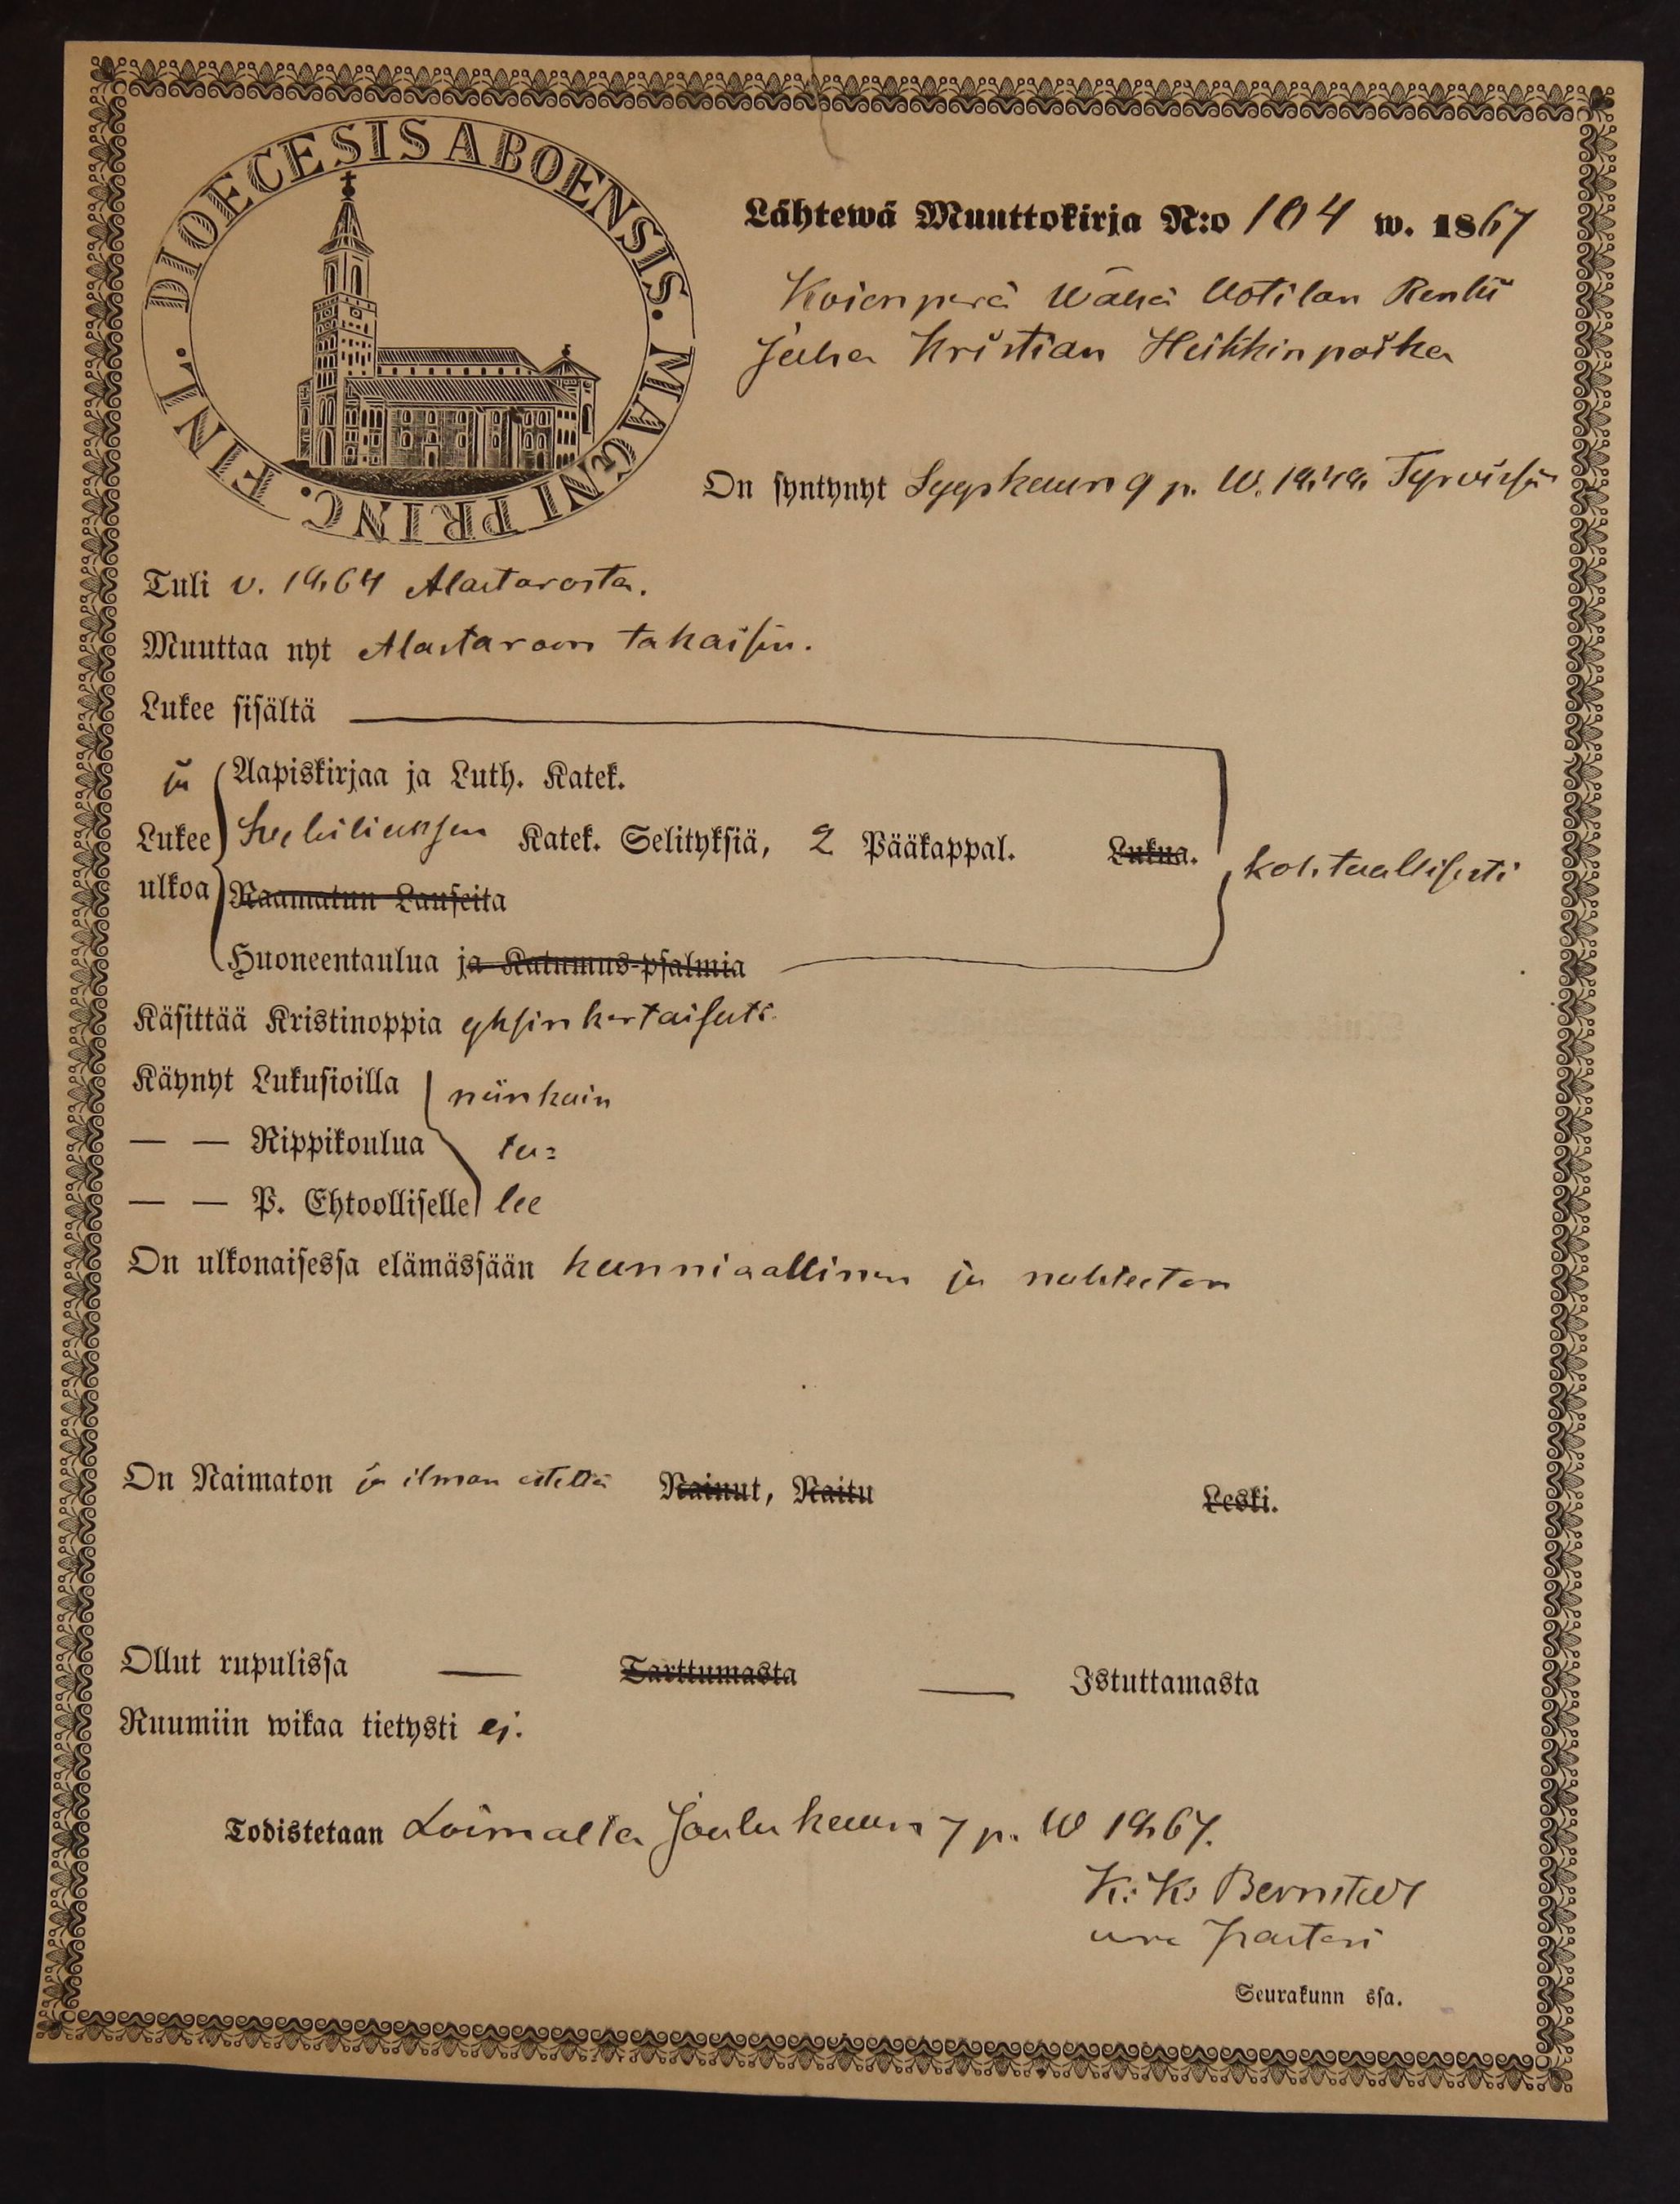 DIOECESIS ABOENSIS. MAGNI PRINC. FINL.
Lähtewä Muuttokirja N:o 104 w. 1867
Koienperä Wähä Uotilan Renki
Juha Kristian Heikkinpoika
On syntynyt Syyskuun 9 p. W. 1848 Tyrvääsä
Tuli v. 1864 Alastarosta.
Muuttaa nyt Alastaroon takaisin.
Lukee sisältä
ja Aapiskirjaa ja Luth. Katek.
Lukee Svebiliuksen Katek. Selityksiä, 2 Pääkappal. Lukua.
kohtuallisesti
ulkoa Raamatun Lauseita
Huoneentaulua ja Katumus-psalmia
Käsittää Kristinoppia yksinkertaisesti
Käynyt Lukusioilla niinkuin
— — Rippikoulua tu=
— — P. Ehtoolliselle lee
On ulkonaisessa elämässään kunniaallinen ja nuhteeton
On Naimaton ja ilman esteltä Nainut, Naitu Leski.
Ollut rupulissa — Tarttumasta — Istuttamasta
Ruumiin wikaa tietysti ej.
Todistetaan Loimalla Joulukuun 7 p. W 1867.
K: K: Bernstedt
Pastori
Seurakunn ssa.